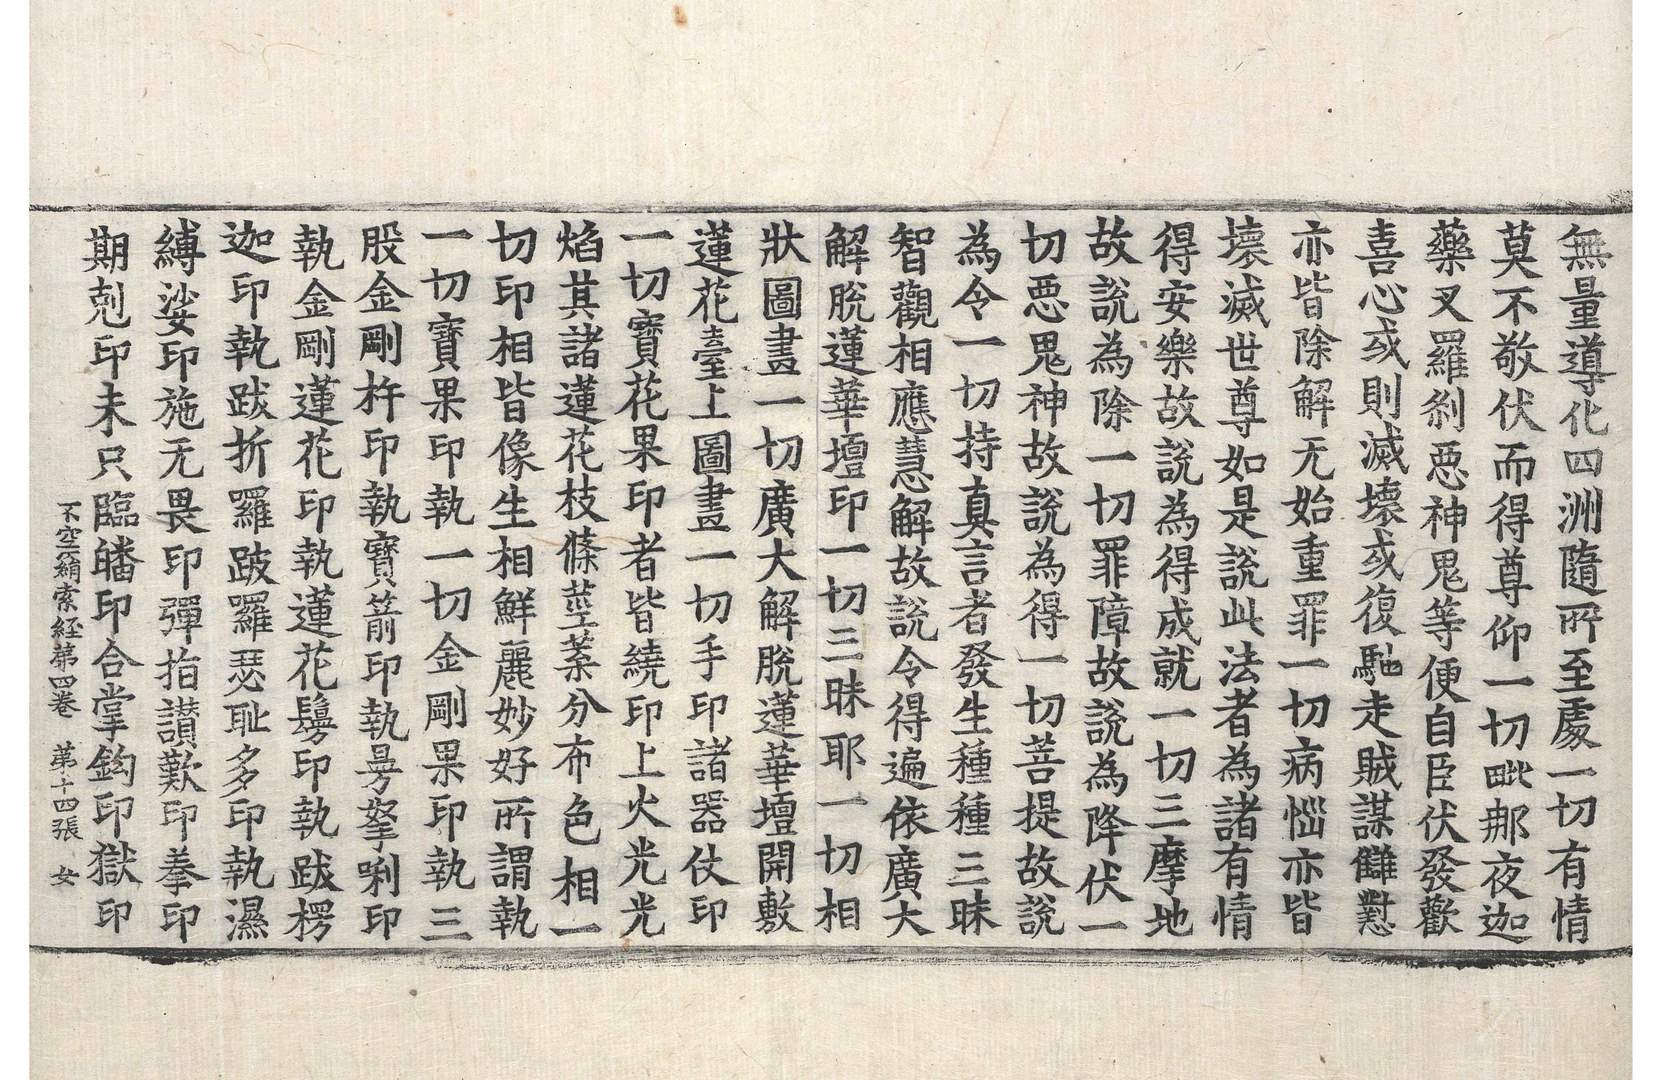 無量導化四洲隨所至處一切有情
莫不敬伏而得尊仰一切毗那夜迦
藥叉羅刹惡神鬼等便自臣伏發歡
喜心或則滅壞或復馳走賊謀讎懟
亦皆除解无始重罪一切病惱亦皆
壞滅世尊如是說此法者為諸有情
得安樂故說為得成就一切三摩地
故說為除一切罪障故說為降伏一
切惡鬼神故說為得一切菩提故說
為令一切持真言者發生種種三昧
智觀相應慧解故說令得遍依廣大
解脫蓮華壇印一切三昧耶一切相
狀圖畫一切廣大解脫蓮華壇開敷
蓮花臺上圖畫一切手印諸器仗印
一切寶花果印者皆繞印上火光光
焰其諸蓮花枝條莖葉分布色相一
切印相皆像生相鮮麗妙好所謂執
一切寶果印執一切金剛果印執三
股金剛杵印執寶箭印執曼拏唎印
執金剛蓮花印執蓮花鬘印執跋楞
迦印執跋折羅跛囉瑟耻多印執濕
縛娑印施无畏印彈指讃歎印拳印
期剋印未只臨皤印合掌鉤印獄印
不空羂索経苐四卷 苐十四張 女